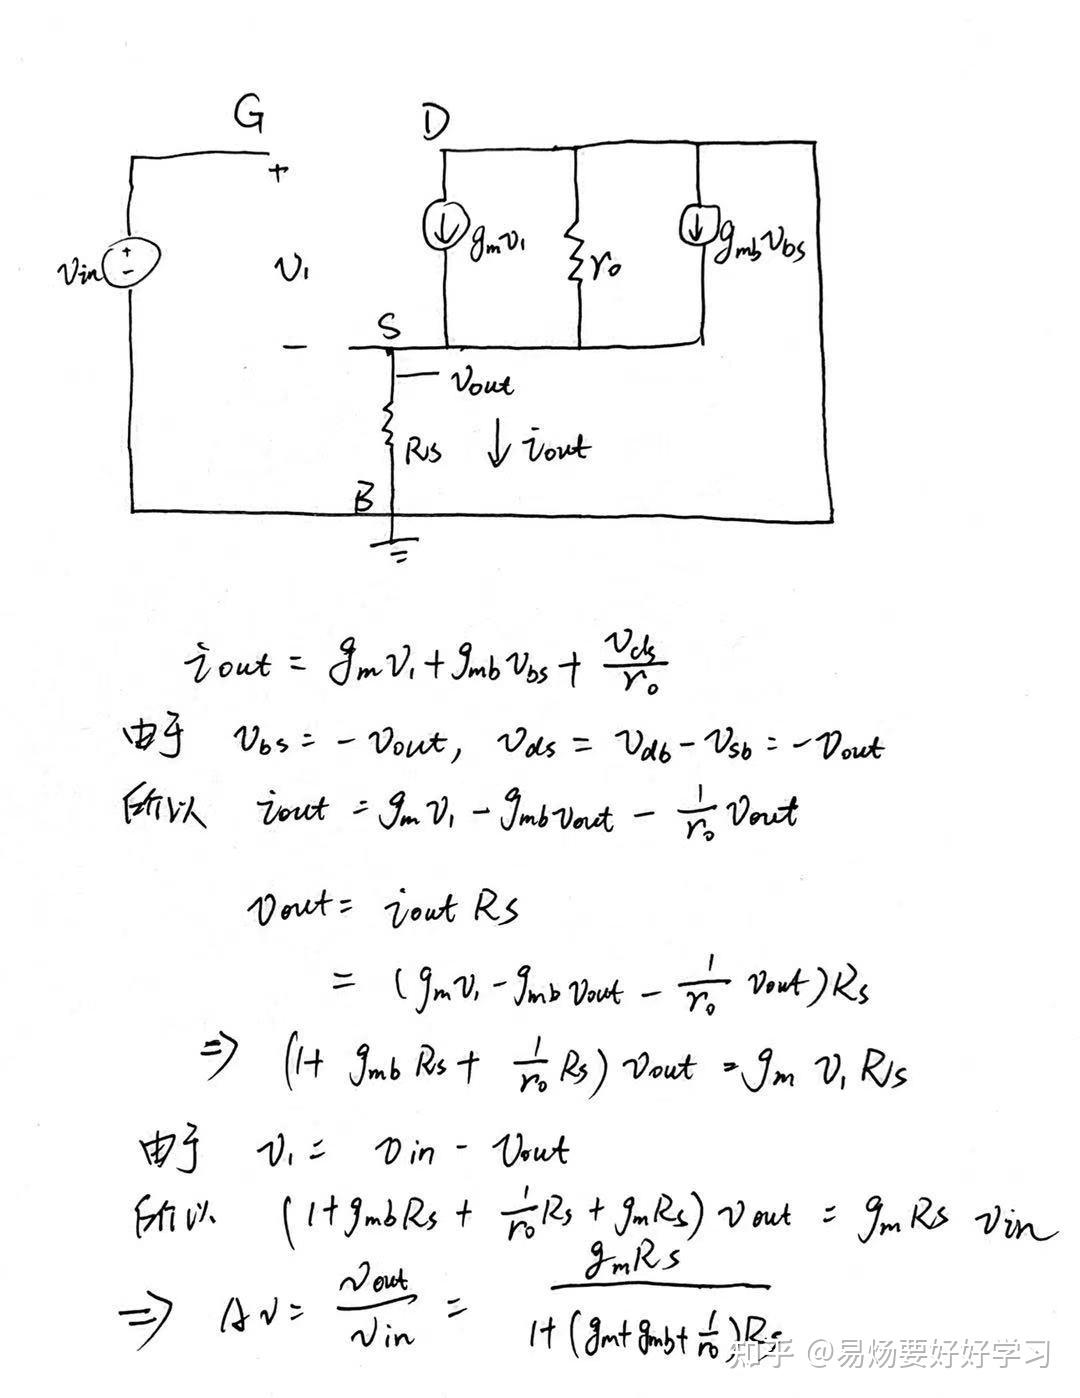 G
D
+
vin
+
-
v1
gmv1
ro
gmbvbs
S
-
vout
Rs
↓ iout
B
iout = gmv1 + gmbvbs + vds/ro
由于 vbs = -vout, vds = vdb - vsb = -vout
所以 iout = gmv1 - gmbvout - 1/ro vout
vout = iout Rs
= (gmv1 - gmbvout - 1/ro vout)Rs
⇒ (1+ gmbRs + 1/ro Rs) vout = gm v1 Rs
由于 v1 = vin - vout
所以 (1+gmbRs + 1/ro Rs + gmRs) vout = gmRs vin
⇒ Av = vout/vin = gmRs/1+(gm+gmb+1/ro)Rs
知乎 @易炀要好好学习